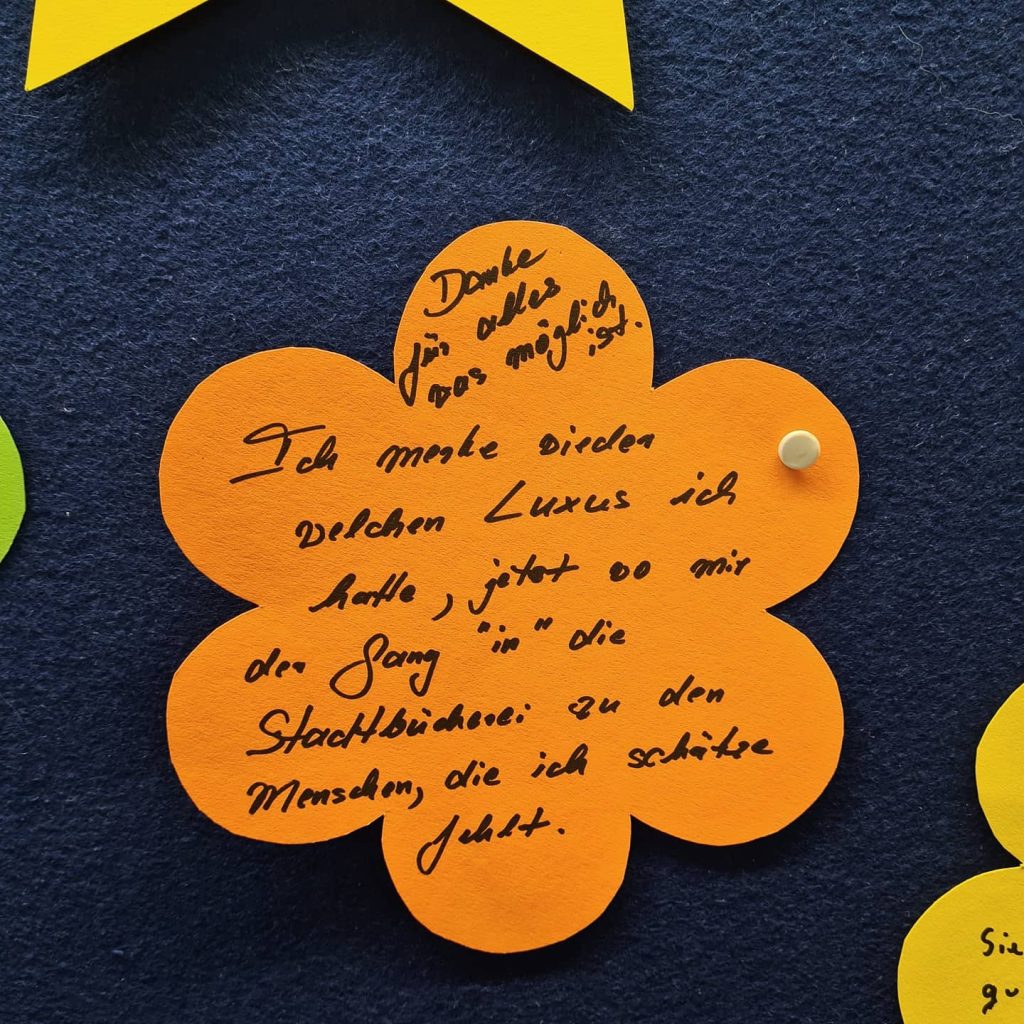 Danke
für alles
was möglich
ist.
Ich merke wieder
welchen Luxus ich
hatte, jetzt wo mir
der Gang "in" die
Stadtbücherei zu den
Menschen, die ich schätze
fehlt.
Sie
gu